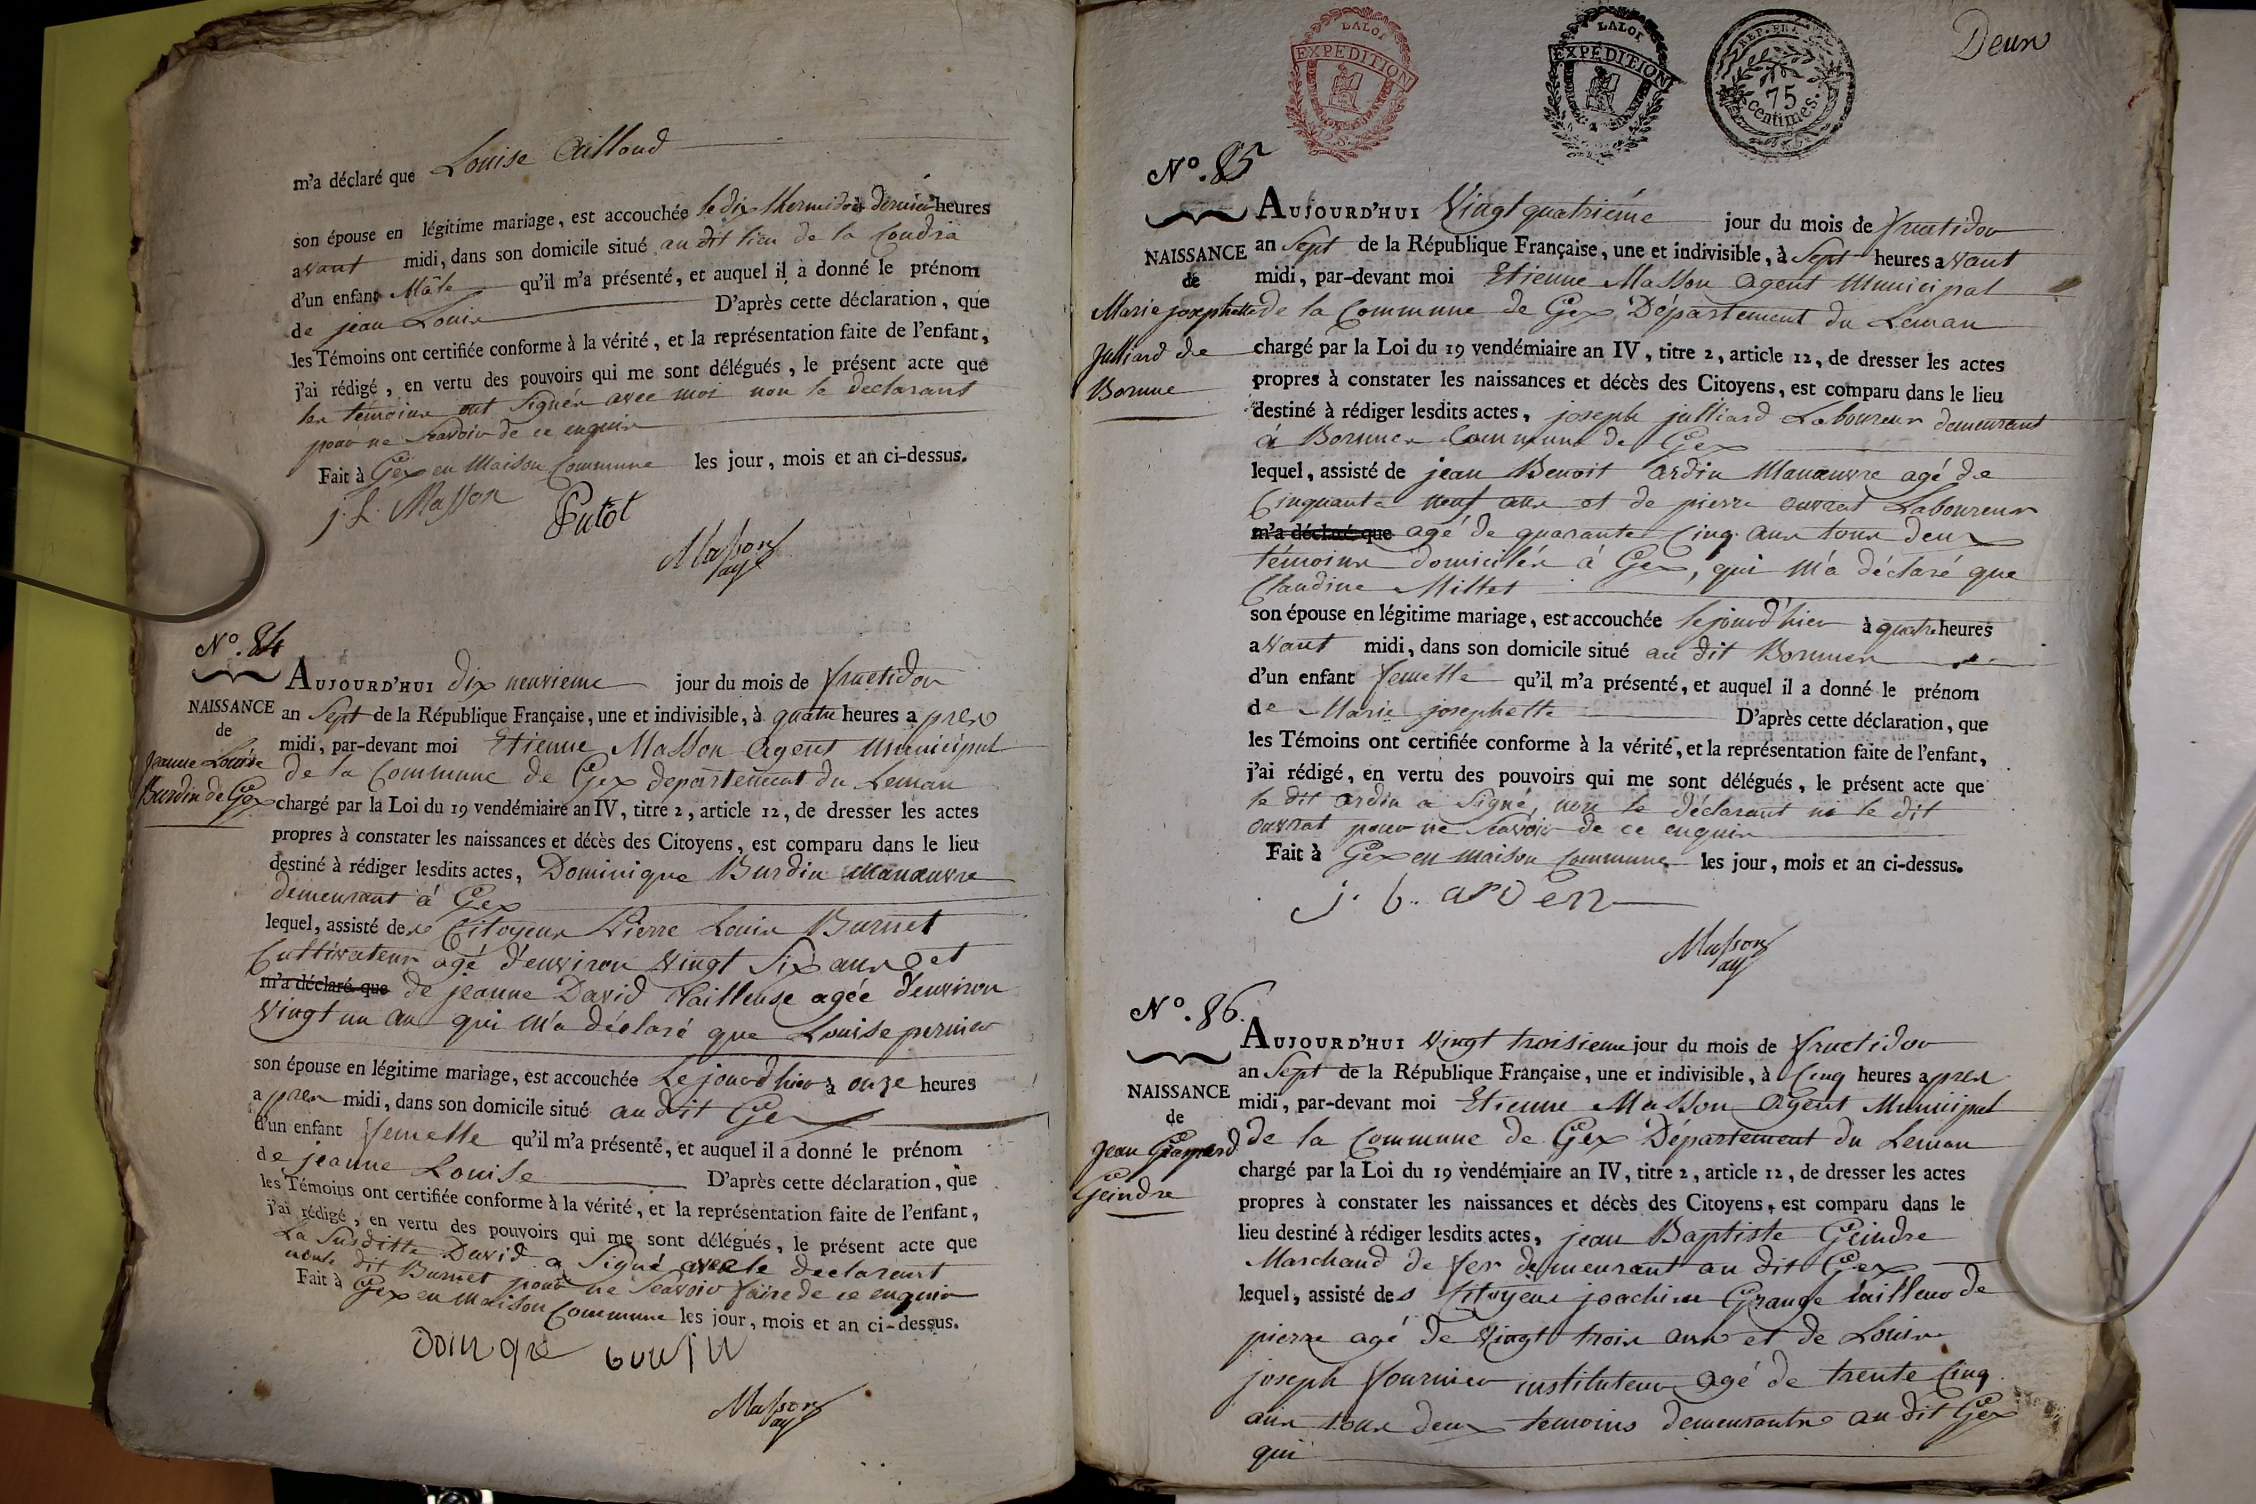 m'a déclaré que Louise Ailloud
son épouse en légitime mariage, est accouchée le dix thermidor dernier heures
avant midi, dans son domicile situé au dit lieu de la Coudra
d'un enfant Mâle qu'il m'a présenté, et auquel il a donné le prénom
de jean Louis D'après cette déclaration, que
les Témoins ont certifiée conforme à la vérité, et la représentation faite de l'enfant,
j'ai rédigé, en vertu des pouvoirs qui me sont délégués, le présent acte que
les témoins ont signés avec moi non le declarant
pour ne Scavoir de ce enquis
Fait à Gex en Maison Commune les jour, mois et an ci-dessus.
j. L. Masson
Putot
Masson
ag
N°. 84
AUJOURD'HUI dix neuvieme jour du mois de fructidor
NAISSANCE
de
Jeanne Louise
Burdin de Gex
an Sept de la République Française, une et indivisible, à quatre heures apres
midi, par-devant moi Etienne Masson Agent municipal
de la Commune de Gex departement du Leman
chargé par la Loi du 19 vendémiaire an IV, titre 2, article 12, de dresser les actes
propres à constater les naissances et décès des Citoyens, est comparu dans le lieu
destiné à rédiger lesdits actes, Dominique Burdin manœuvre
demeurant à Gex
lequel, assisté des Citoyens Pierre Louis Burnet
Cultivateur agé d'environ Vingt Six ans et
m'a déclaré que de jeanne David Tailleuse agée d'environ
Vingt un an qui m'a déclaré que Louise pernier
son épouse en légitime mariage, est accouchée Le jourd'hier à onze heures
apres midi, dans son domicile situé au dit Gex
d'un enfant femelle qu'il m'a présenté, et auquel il a donné le prénom
de jeanne Louise D'après cette déclaration, que
les Témoins ont certifiée conforme à la vérité, et la représentation faite de l'enfant,
j'ai rédigé, en vertu des pouvoirs qui me sont délégués, le présent acte que
La Susditte David a Signé avec le declarant
non le dit Burnet pour ne Scavoir faire de ce enquis
Fait à Gex en Maison Commune les jour, mois et an ci-dessus.
Masson
ag
Deux
LA LOI
EXPÉDITION
LA LOI
EXPÉDITION
REP. FRA.
75
centimes.
N°. 85
AUJOURD'HUI Vingt quatriéme jour du mois de fructidor
NAISSANCE
de
Marie josephette
Julliard de
Bornne
an Sept de la République Française, une et indivisible, à Sept heures avant
midi, par-devant moi Etienne Masson Agent Municipal
de la Commune de Gex Département du Leman
chargé par la Loi du 19 vendémiaire an IV, titre 2, article 12, de dresser les actes
propres à constater les naissances et décès des Citoyens, est comparu dans le lieu
destiné à rédiger lesdits actes, joseph julliard Laboureur demeurant
à Commune de Gex
lequel, assisté de jean Benoit ardin Manœuvre agé de
Cinquante neuf ans et de pierre ouvrat Laboureur
m'a déclaré que agé de quarante Cinq ans tous deux
témoins domiciliés à Gex, qui m'a déclaré que
Claudine Millet
son épouse en légitime mariage, est accouchée le jourd'hier à quatre heures
avant midi, dans son domicile situé au dit
d'un enfant femelle qu'il m'a présenté, et auquel il a donné le prénom
de Marie josephette D'après cette déclaration, que
les Témoins ont certifiée conforme à la vérité, et la représentation faite de l'enfant,
j'ai rédigé, en vertu des pouvoirs qui me sont délégués, le présent acte que
le dit ardin a Signé, non le déclarant ni le dit
ouvrat pour ne Scavoir de ce enquis
Fait à Gex en maison Commune les jour, mois et an ci-dessus.
Masson
ag
N°. 86.
AUJOURD'HUI Vingt troisieme jour du mois de fructidor
NAISSANCE
de
Jean
Geindre
an Sept de la République Française, une et indivisible, à Cinq heures apres
midi, par-devant moi Etienne Masson Agent Municipal
de la Commune de Gex Département du Leman
chargé par la Loi du 19 vendémiaire an IV, titre 2, article 12, de dresser les actes
propres à constater les naissances et décès des Citoyens, est comparu dans le
lieu destiné à rédiger lesdits actes, jean Baptiste Geindre
Marchand de fer demeurant au dit Gex
lequel, assisté des Citoyens joachim Grange tailleur de
pierre agé de Vingt trois ans et de Louis
joseph fournier instituteur agé de trente Cinq
ans tous deux temoins demeurants au dit Gex
qui